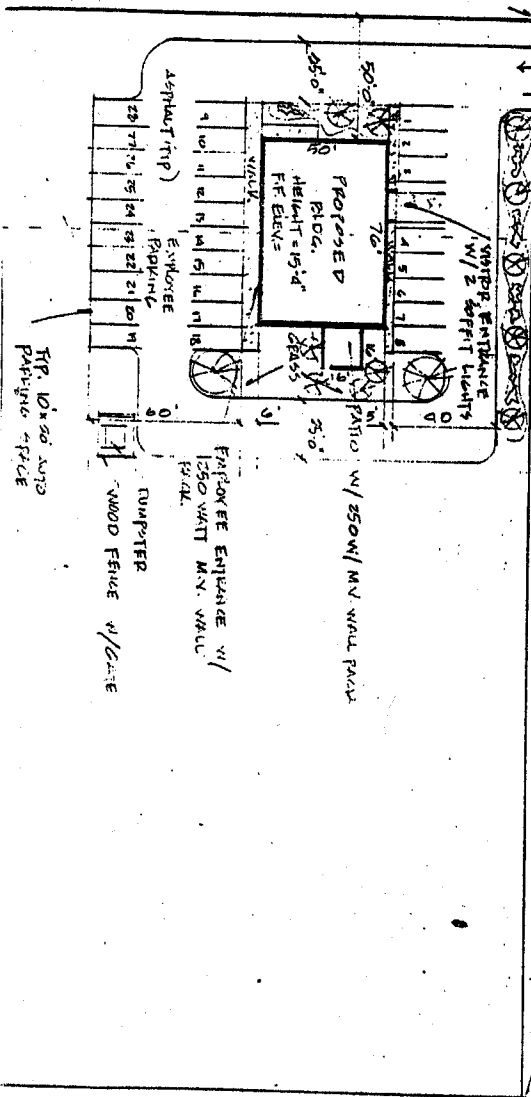 VISITOR ENTRANCE
W/ 2 SOFFIT LIGHTS
1 2 3 4 5 6 7 8
50'0"
25'0"
50'
76'
PROPOSED
BLDG.
HEIGHT = 15'-4"
F.F. ELEV. =
WALK
WALK
GRASS
PATIO W/ 250W/ M.V. WALL PACK
25'0"
9 10 11 12 13 14 15 16 17 18
ASPHALT (TYP)
EMPLOYEE
PARKING
28 27 26 25 24 23 22 21 20 19
EMPLOYEE ENTRANCE W/
1250 WATT M.V. WALL
PACK.
DUMPSTER
WOOD FENCE W/GATE
TYP. 10x20 AUTO
PARKING SPACE